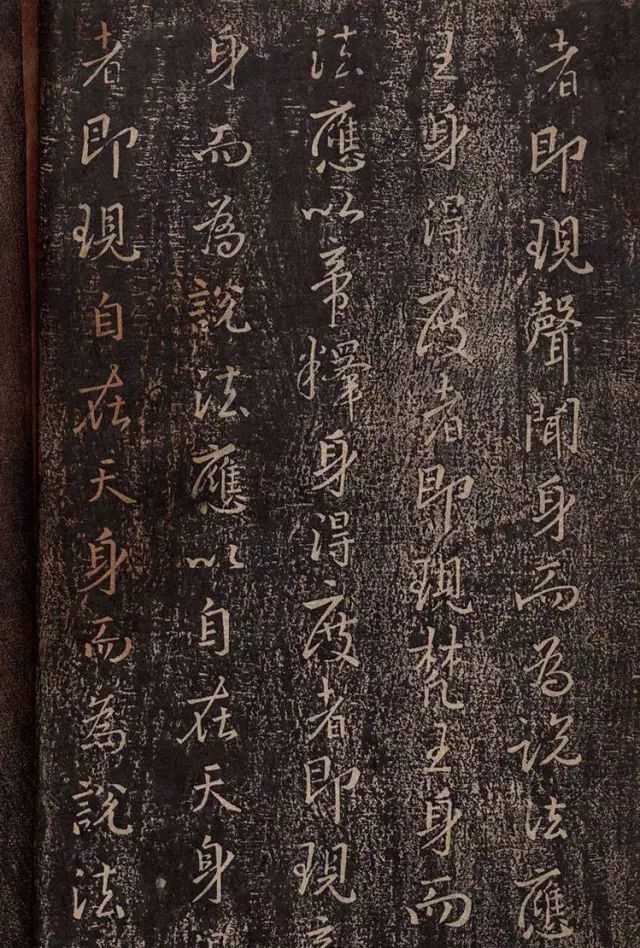 者即現聲聞身而為説法應
王身得度者即現梵王身而
法應以帝釋身得度者即現
身而為說法應以自在天身
者即現自在天身而為說法